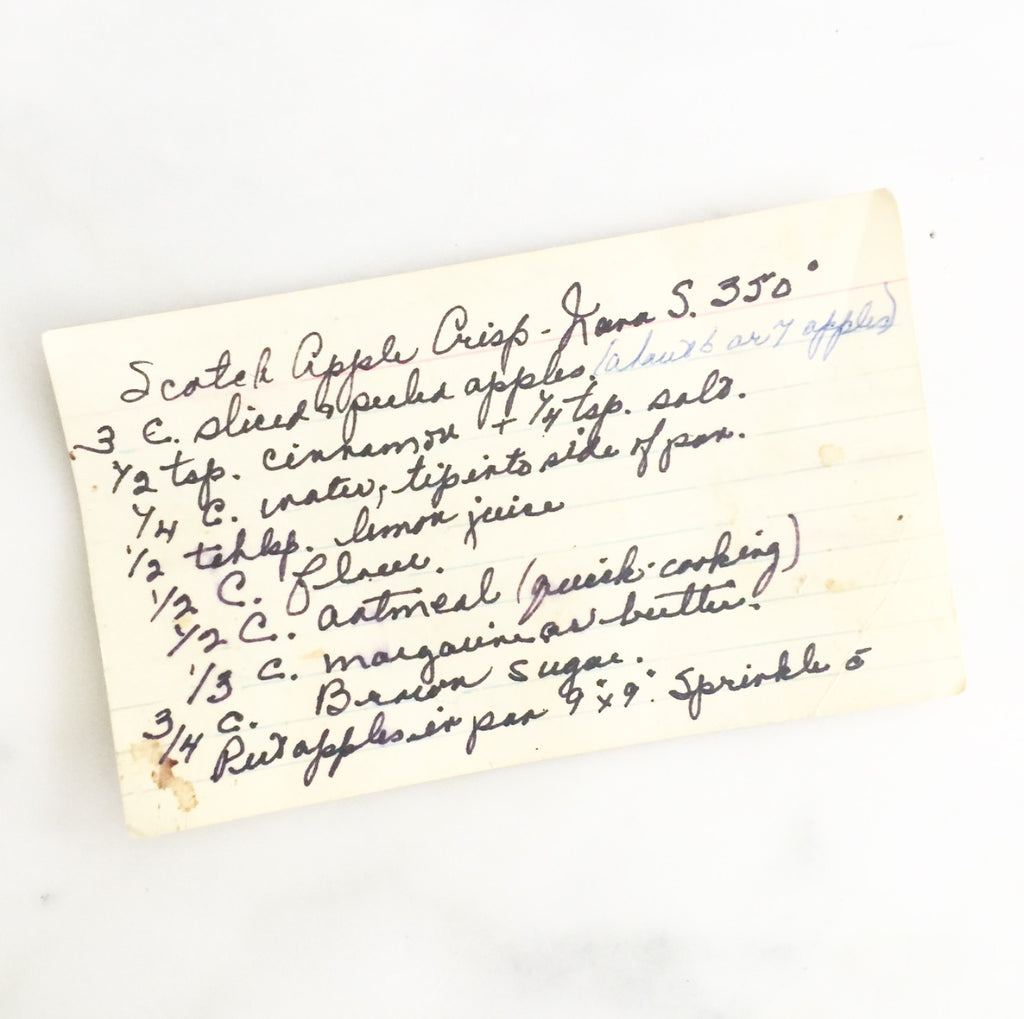 Scotch Apple Crisp - S. 350°
3 C. sliced & peeled apples. (about 6 or 7 apples)
1/2 tsp. cinnamon + 1/4 tsp. salt.
1/4 C. water, tip into side of pan.
1/2 lemon juice
1/2 C. flour.
1/2 C. oatmeal (quick-cooking)
1/3 C. margarine or butter.
3/4 C. Brown Sugar.
Put apples in pan 9"x9". Sprinkle